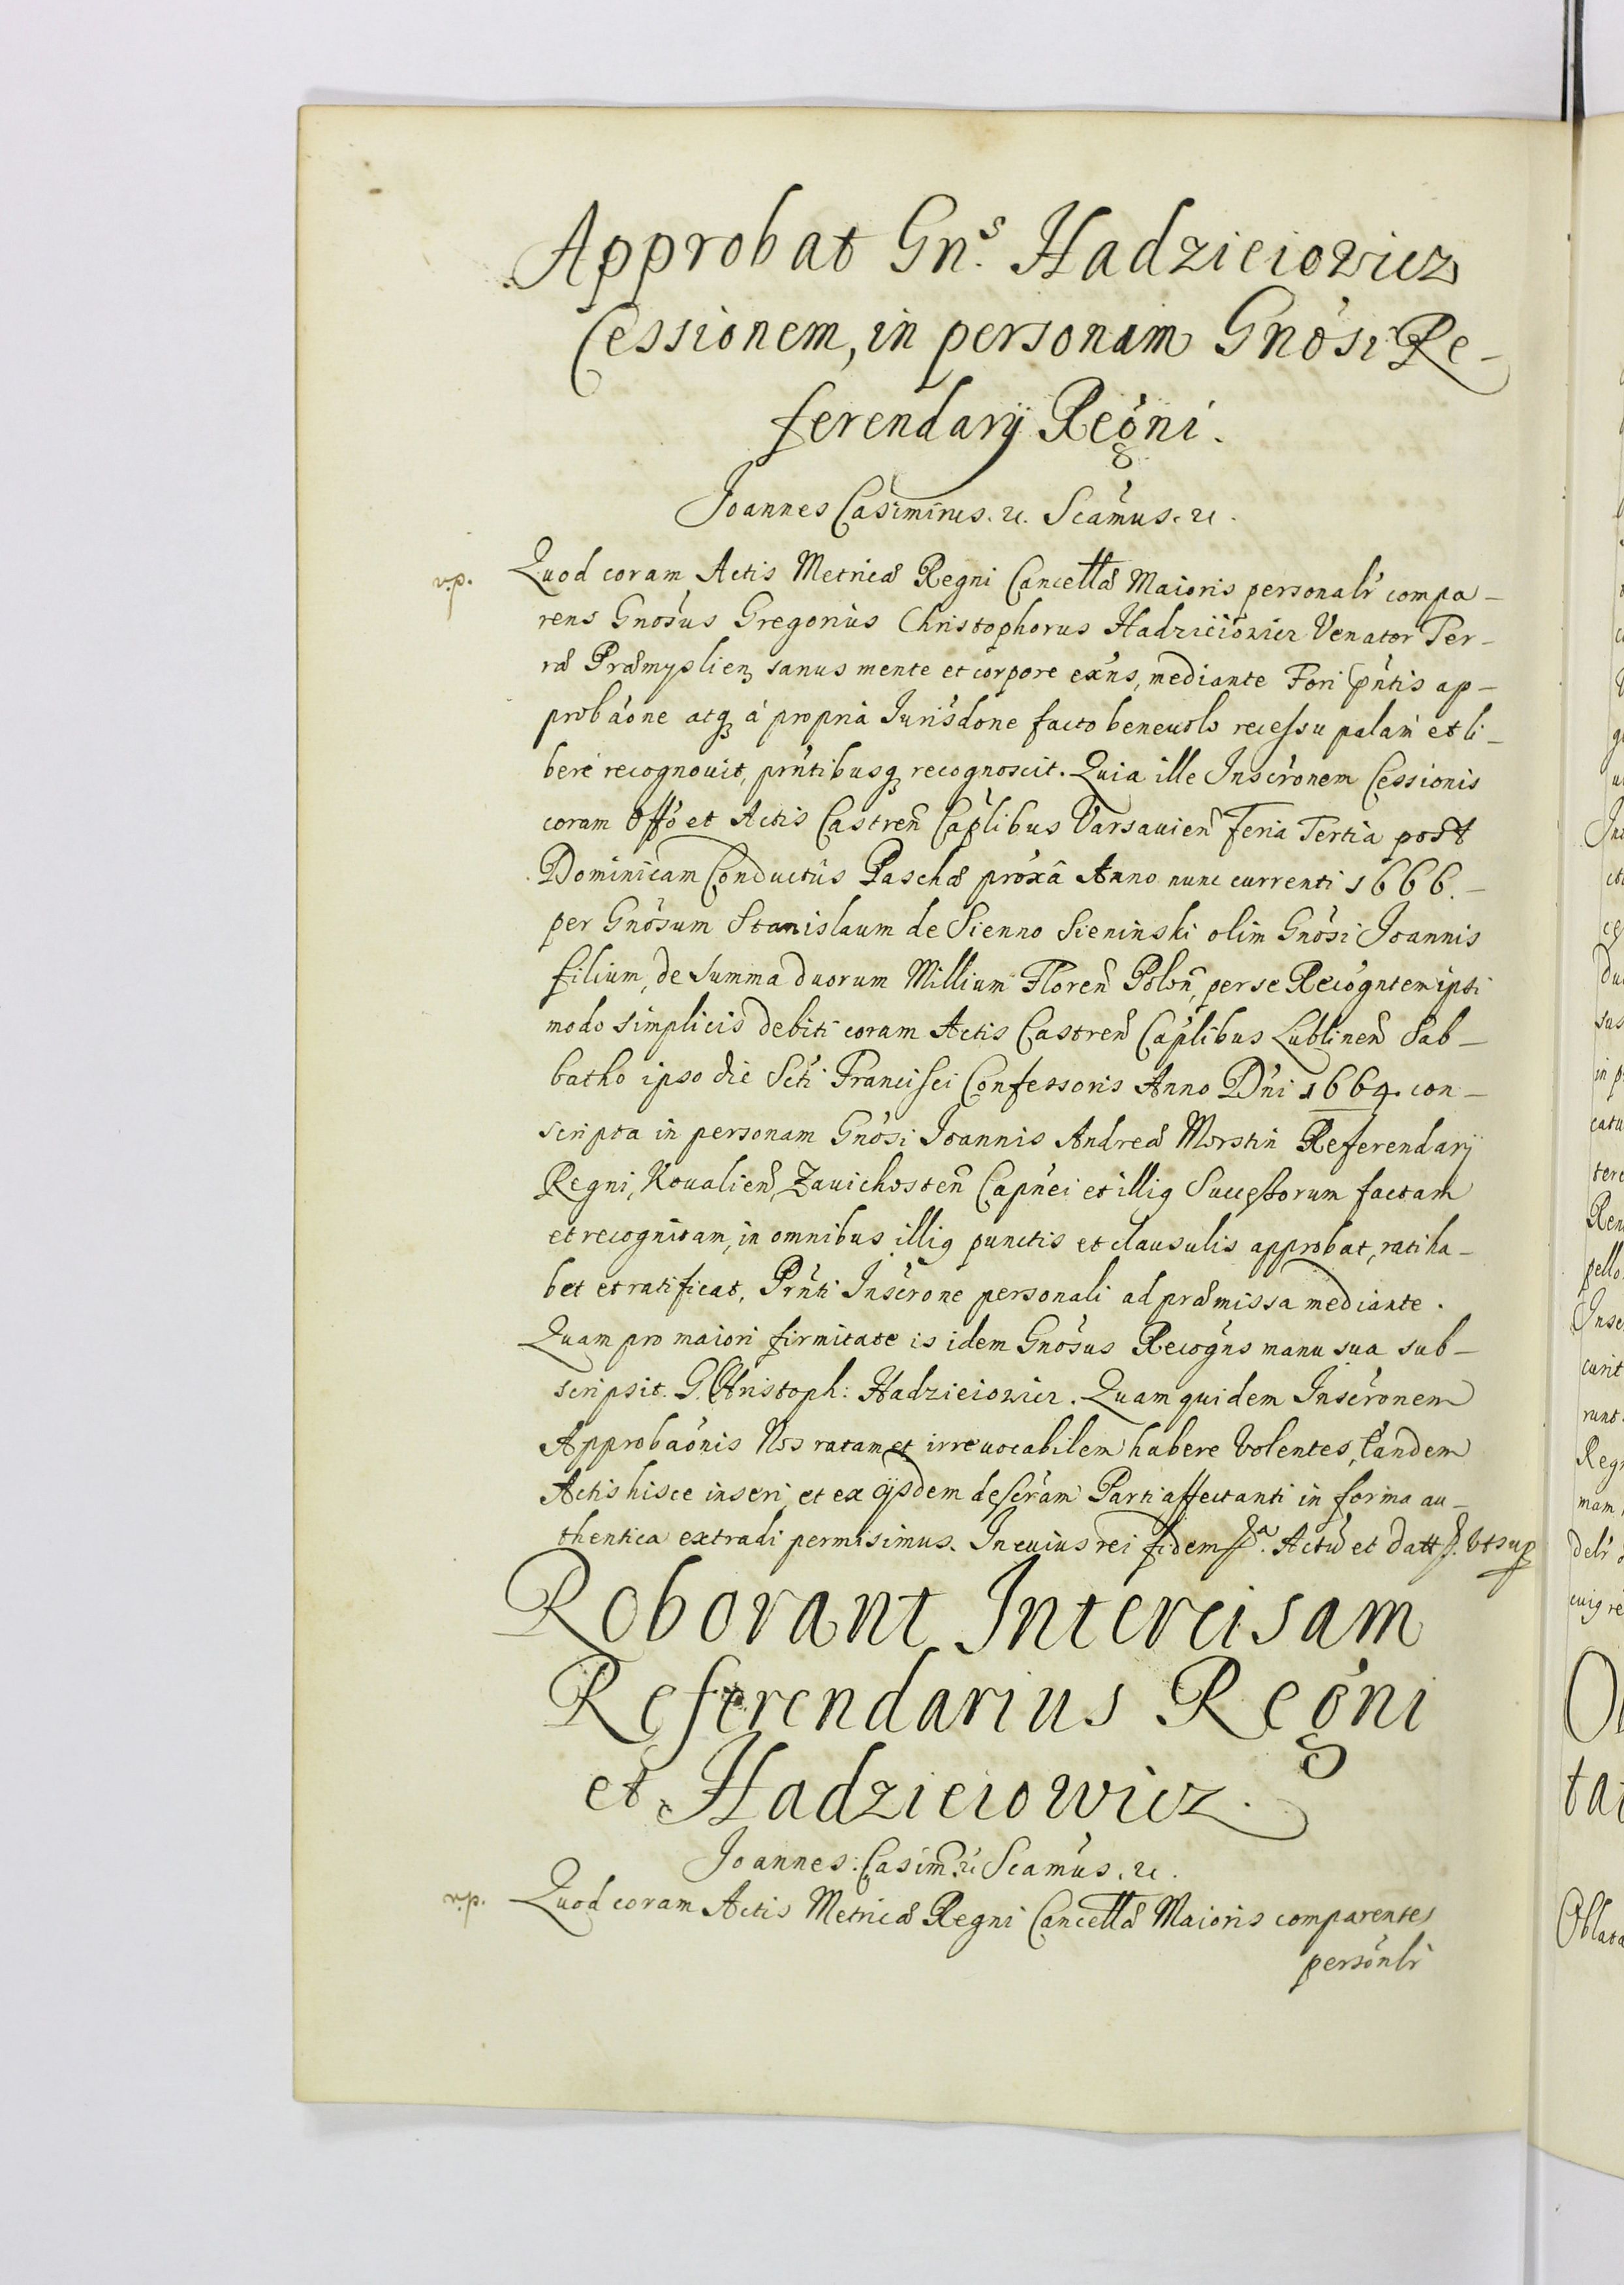 Approbat Gn.s Hadzieiowicz
Cessionem, in personam Gnosi Re-
ferendarij Regni.
Joannes Casimirus. &. Scamus. &.
v.p. Quod coram Actis Metricæ Regni Cancellæ Maioris personalr compa-
rens Gnosus Gregorius Christophorus Hadzieiowicz Venator Ter-
ræ Præmyslien, sanus mente et corpore exns, mediante Fori pntis ap-
probaone atq3 á propria Jurisdone facto beneuolo recessu palam et li-
bere recognouit, prntibusq3 recognoscit. Quia ille Inscronem Cessionis
coram Offo et Actis Castren Caplibus Varsauien Feria Tertia post
Dominicam Conductus Paschæ proxa Anno nunc currenti 1666.-
per Gnosum Stanislaum de Sienno Sieninski olim Gnosi Joannis
filium, de Summa duorum Millium Floren Polon, per se Recogntem ipsi
modo simplicis debiti coram Actis Castren Caplibus Lublinen Sab-
batho ipso die Scti Francisci Confessoris Anno Dni 1664. con-
scripta in personam Gnosi Joannis Andreæ Morstin Referendarij
Regni, Koualien, Zauichosten Capnei et illiq Successorum factam
et recognitam, in omnibus illiq punctis et clausulis approbat, ratiha-
bet et ratificat, Prnti Inscrone personali ad præmissa mediante.
Quam pro maiori firmitate is idem Gnosus Recogns manu sua sub-
scripsit. G. Christoph: Hadzieiowicz. Quam quidem Inscronem
Approbaonis Nos ratam et irreuocabilem habere Volentes, Eandem
Actis hisce inseri, et ex ijsdem descram Parti affectanti in forma au-
thentica extradi permisimus. In cuius rei fidem Actu et Datt Vt sup
Roborant Intercisam
Referendarius Regni
et Hadzieiowicz.
Joannes: Casim. & Scamus. &.
v.p. Quod coram Actis Metricæ Regni Cancellæ Maioris comparentes
personlr